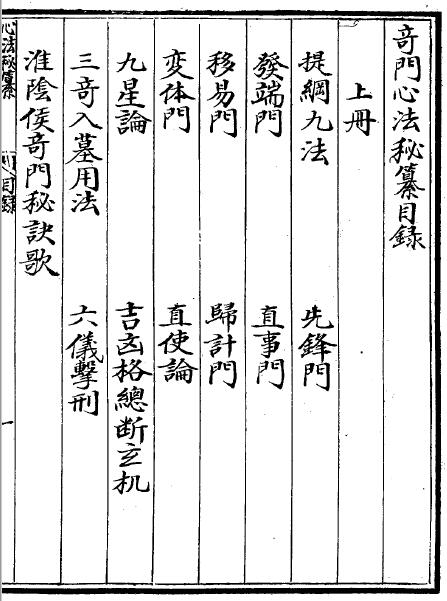 奇門心法秘纂目録
上册
提綱九法 先鋒門
發端門 直事門
移易門 歸計門
変体門 直使論
九星論 吉凶格總断玄机
三奇入墓用法 六儀擊刑
淮陰侯奇門秘訣歌
心法秘纂 目録 一